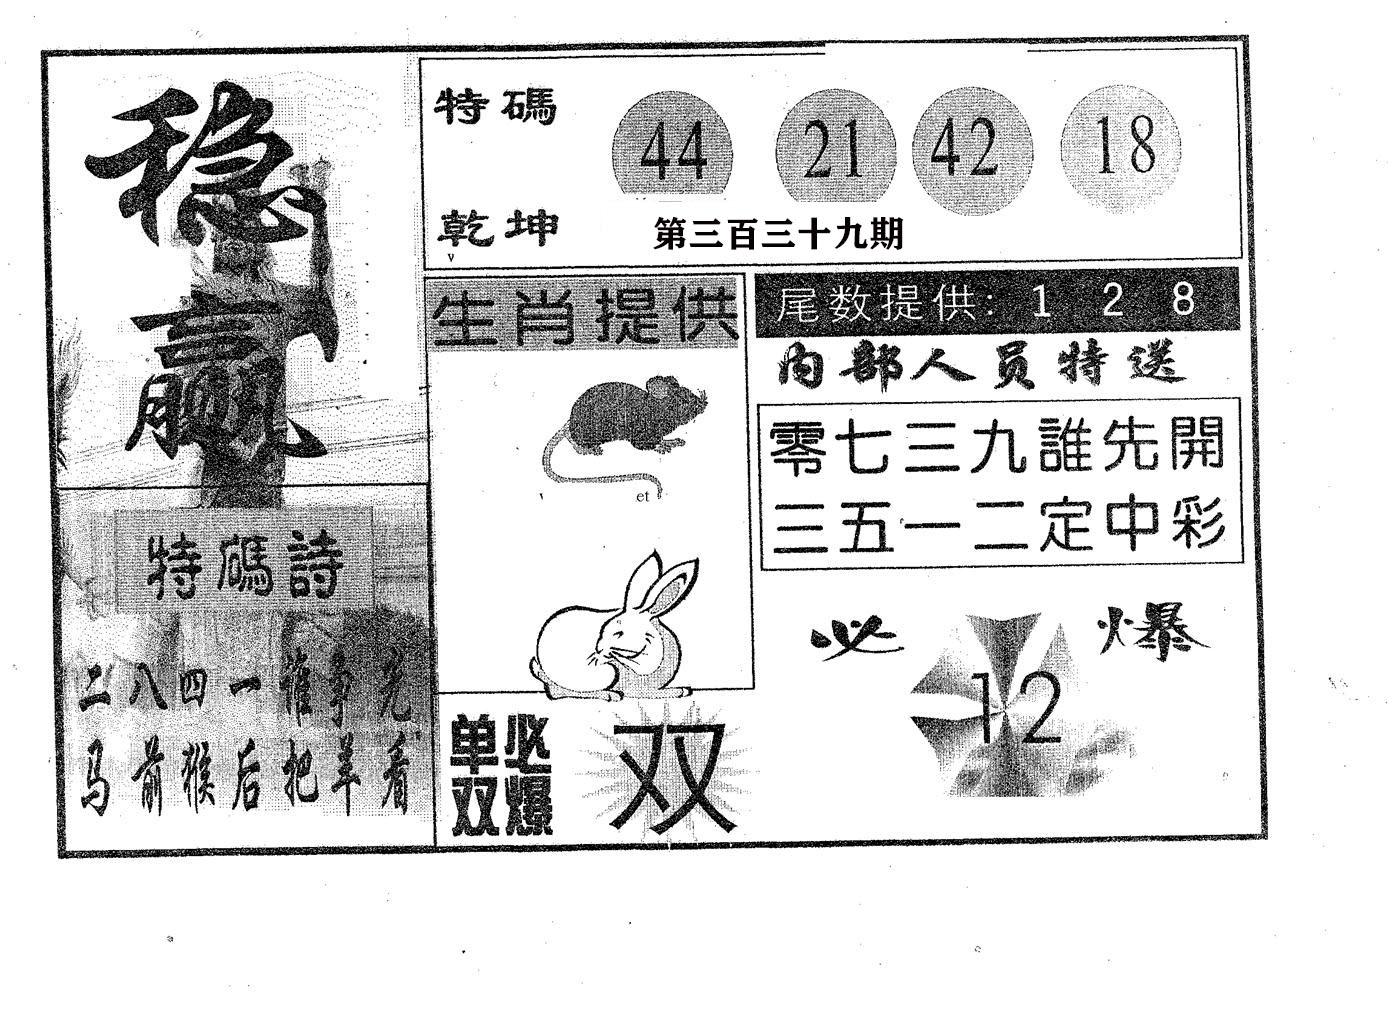 稳
赢
特碼詩
二八四一谁争先
马前猴后把羊看
特碼
44 21 42 18
乾坤
第三百三十九期
生肖提供
et
单必
双爆
双
尾数提供: 1 2 8
内部人员特送
零七三九誰先開
三五一二定中彩
必爆
12